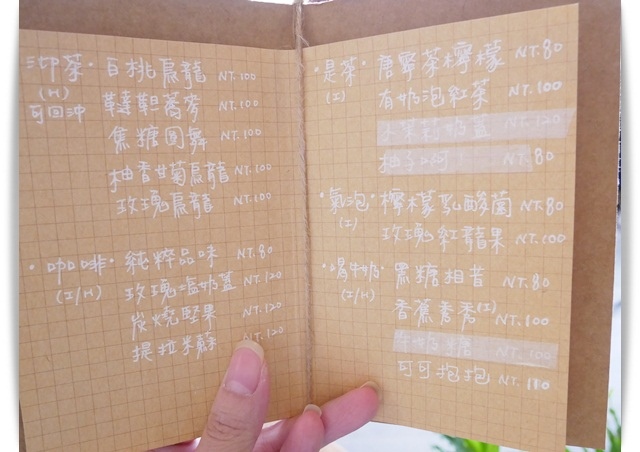 沖茶・白桃烏龍 NT.100
(H)
可回沖 韃靼蕎麥 NT.100
焦糖圓舞 NT.100
柚香甘菊烏龍 NT.100
玫瑰烏龍 NT.100
・咖啡・純粹品味 NT.80
(I/H) 玫瑰鹽奶蓋 NT.120
炭燒堅果 NT.120
提拉米蘇 NT.120
・是茶・唐寧茶檸檬 NT.80
(I) 有奶泡紅茶 NT.100
奶蓋 NT.120
NT.80
・氣泡・檸檬乳酸菌 NT.80
(I) 玫瑰紅龍果 NT.100
・喝牛奶・黑糖相昔 NT.80
(I/H) 香蕉香秀(I) NT.100
NT.100
可可抱抱 NT.110